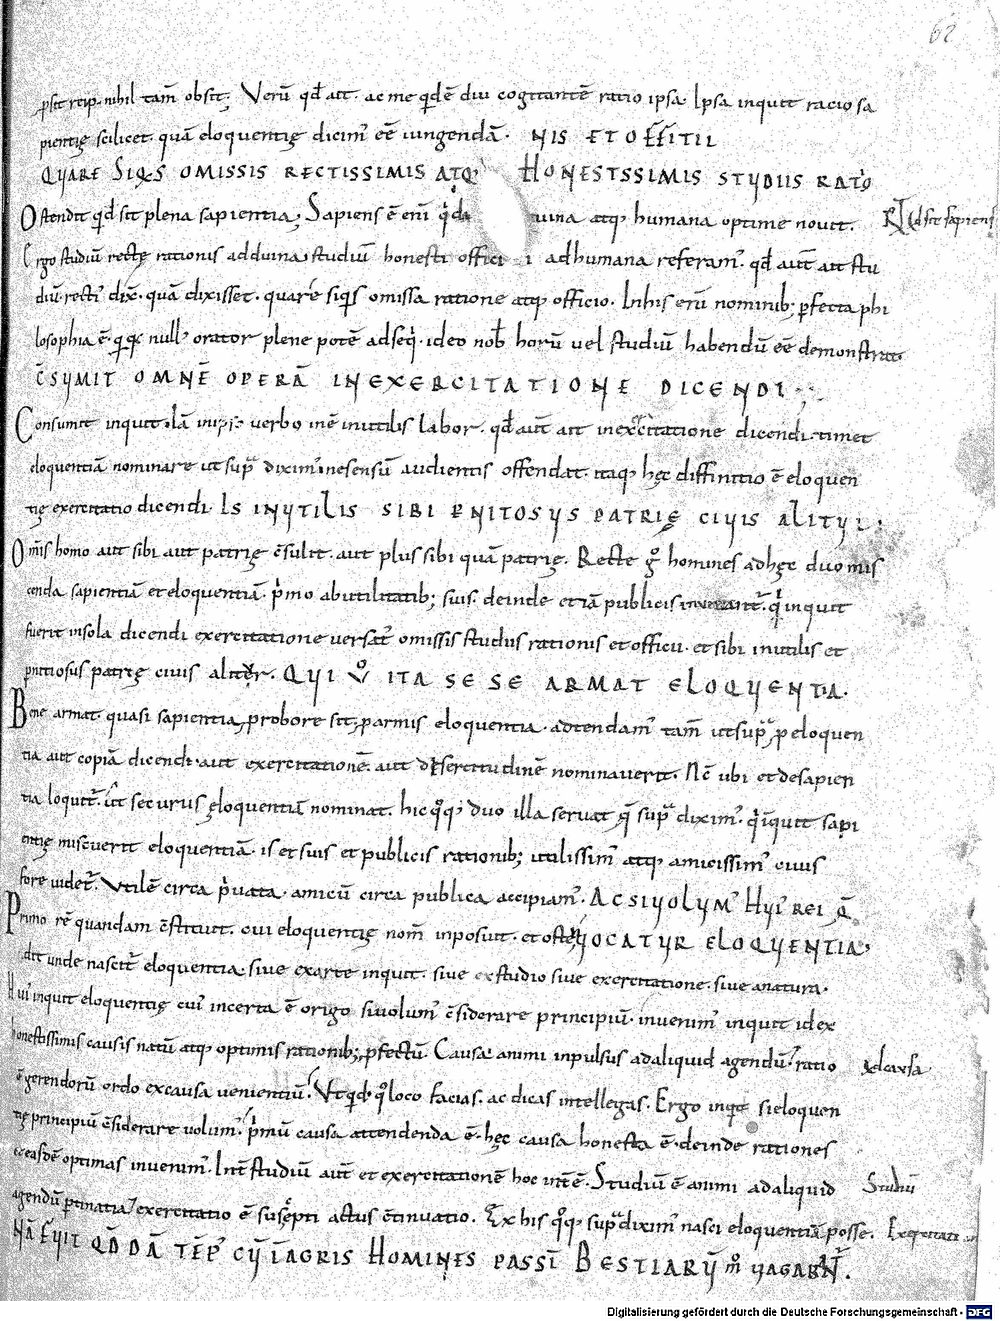 62
nihil tam̄ obsit. Verū qd̄ ait. ac me qdē diu cogitantē ratio ipsa. Ipsa inquit racio sa
pientię scilicet. quā eloquentię dicim' eē iungendā. NIS ET OFFITII
QUARE SIQIS OMISSIS RECTISSIMIS ATQ; HONESTSSIMIS STUDIIS RATO
Ostendit qd̄ sit plena sapientia; Sapiens ē eni qui da uina atq; humana optime nouit. Qid sit sapiens
Ergo studiū rectę rationis ad diuina; studiū honesti offici i ad humana referam'. qd̄ aut̄ ait stu
diū recti dix̄. quā dixisset. quare siqis omissa ratione atq; officio. In his enī nominib; pfecta phi
losophia ē. null' orator plene potē adseq. ideo nob horū uel studiū habendū eē demonstrat
C̄SUMIT OMNĒ OPERĀ IN EXERCITATIONE DICENDI
Consumit inquit uerbo inē inutilis labor. qd̄ aut̄ ait in exercitatione dicendi. timet
eloquentiā nominare ut sup̄ diximus ne sensū audientis offendat. itaq; hęc diffinitio ē eloquen
tię exercitatio dicendi. IS INUTILIS SIBI PNITOSUS PATRIĘ CIUIS ALITUR.
Om̄is homo aut sibi aut patrię c̄sulit. aut plus sibi quā patrię. Recte g° homines ad hęc duo mis
cenda sapientiā et eloquentiā. p̄mo ab utilitatib; suis. deinde etiā publicis qi inquit
fuerit in sola dicendi exercitatione uersat' omissis studiis rationis et officii. et sibi inutilis et
pnitiosus patrię ciuis alitur. QUI V° ITA SESE ARMAT ELOQUENTIA.
Bene armat. quasi sapientia, pro bore sit; parmis eloquentia. adtendam' tam̄ ut sup̄, p eloquen
tia aut copiā dicendi. aut exercitationē. aut disertitudinē nominauerit. Nc̄ ubi et de sapien
tia loquit'. ut securus eloquentiā nominat. hic q°q; duo illa seruat q̄ sup̄ dixim'. qi iquit sapi
entię miscuerit eloquentiā. is et suis et publicis rationib; utilissim' atq; amicissim' ciuis
fore uidet'. Utilē circa p̄uata. amicū circa publica accipiam'. AC SI UOLUM' HUI' REI Q̄
Primo rē quandam c̄stituit. cui eloquentię nom̄ inposuit. et osten UOCATUR ELOQUENTIA;
dit unde nascit' eloquentia. siue ex arte inquit. siue ex studio siue exercitatione. siue a natura.
Hui' inquit eloquentię cui' incerta ē origo si uolum' c̄siderare principiū. inuenim' inquit id ex
honestissimis causis natū atq; optimis rationib; pfectū. Causa. animi inpulsus ad aliquid agendū. ratio Qid causa
ē gerendorū ordo ex causa uenientiū. Ut qid. q°loco facias. ac dicas intellegas. Ergo inqit si eloquen
tię principiū c̄siderare uolum'. p̄mū causa attendenda ē. hęc causa honesta ē. deinde rationes
ex easdē optimas inuenim'. Int̄ studiū aut̄ et exercitationē hoc int̄ē. Studiū ē animi ad aliquid Studiū
agendū ptinatia. exercitatio ē suscepti actus c̄tinuatio. Ex his q°q; sup̄ dixim' nasci eloquentiā posse. Exercitatio
NĀ FUIT QD̄DĀ TĒP' CŪ Ī AGRIS HOMINES PASSĪ BESTIARŪ m° UAGABANT'.
Digitalisierung gefördert durch die Deutsche Forschungsgemeinschaft - DFG